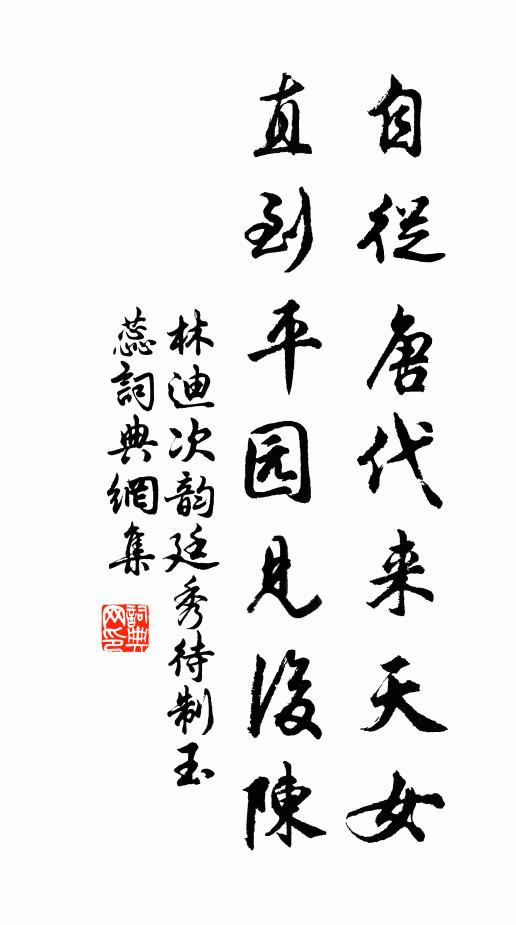 自從唐代来天女
直到平园見後陳
林迪次韵廷秀待制玉
蕊詞典網集
詞典
网印